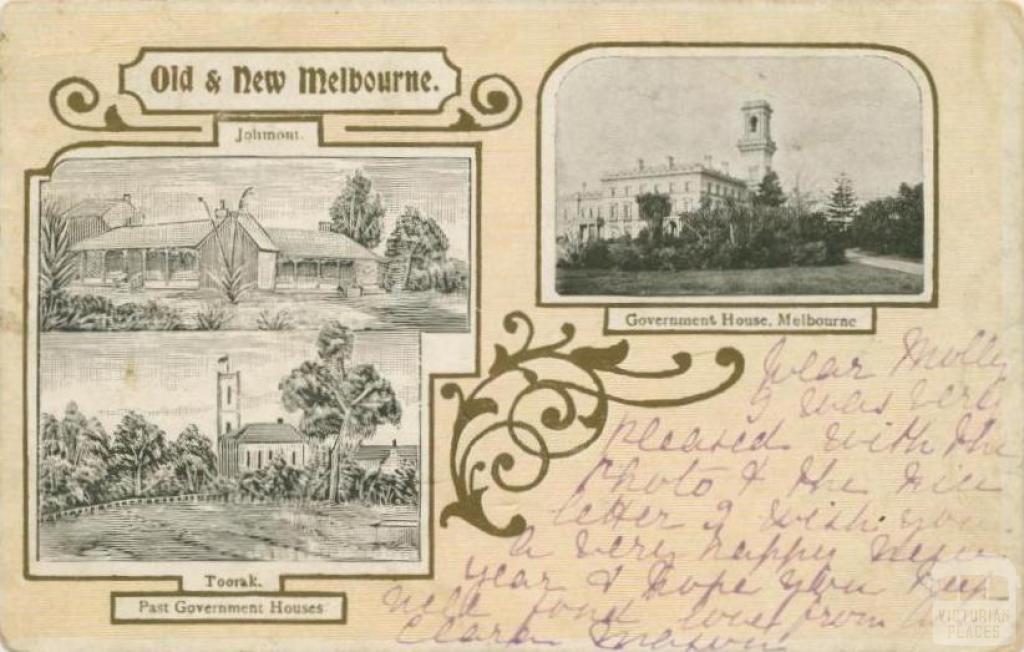 Old & New Melbourne.
Jolimont.
Toorak.
Past Government Houses
Government House, Melbourne
Dear Molly
I was very
pleased with the
Photo & the nice
letter I wish you
a very happy New
year & hope you keep
well fond love from
Clara Mason
VICTORIAN
PLACES